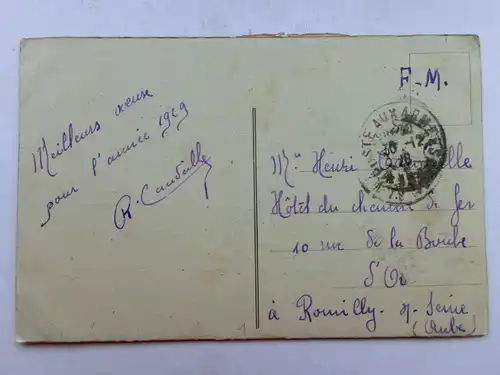 Meilleurs vœux
pour l'année 1929
R. Candeille
F.M.
POSTE AUX ARMEES
30 -12
28
Mr Henri Candeille
Hôtel du chemin de fer
10 rue de la Boule
d'Or
à Romilly s/ Seine
(Aube)